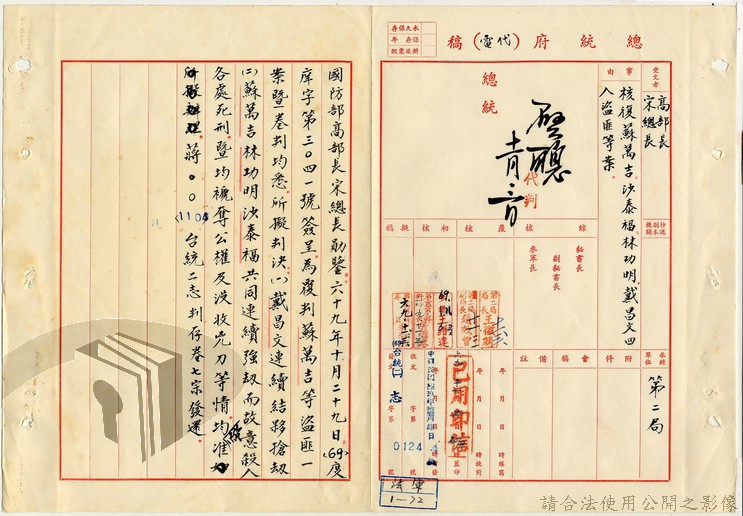 總統府(代電)稿
永久保存
受文者
高部長
宋總長
事由
核復蘇萬吉沙泰福林功明戴昌文四
人盜匪等案
總統
代判
抄送副本機關
承辦單位
第二局
綜核
秘書長
副秘書長
參軍長
覆核
初核
擬稿
附件
會稿
備註
第二局
局長
已用印信
監印
年月日時
收文
發文
字
號
台統(二)
志
0124
軍法
1-72
國防部高部長宋總長勛鑒六十九年十月二十九日(69)度
庠字第三○四一號簽呈為覆判蘇萬吉等盜匪一
案暨一卷判均悉所擬判決㈠戴昌文連續結夥搶劫
㈡蘇萬吉林功明沙泰福共同連續強劫而故意殺人
各處死刑暨均褫奪公權及沒收兇刀等情均准
蔣○○
(1104)
台統二志判存卷七宗發還
請合法使用公開之影像